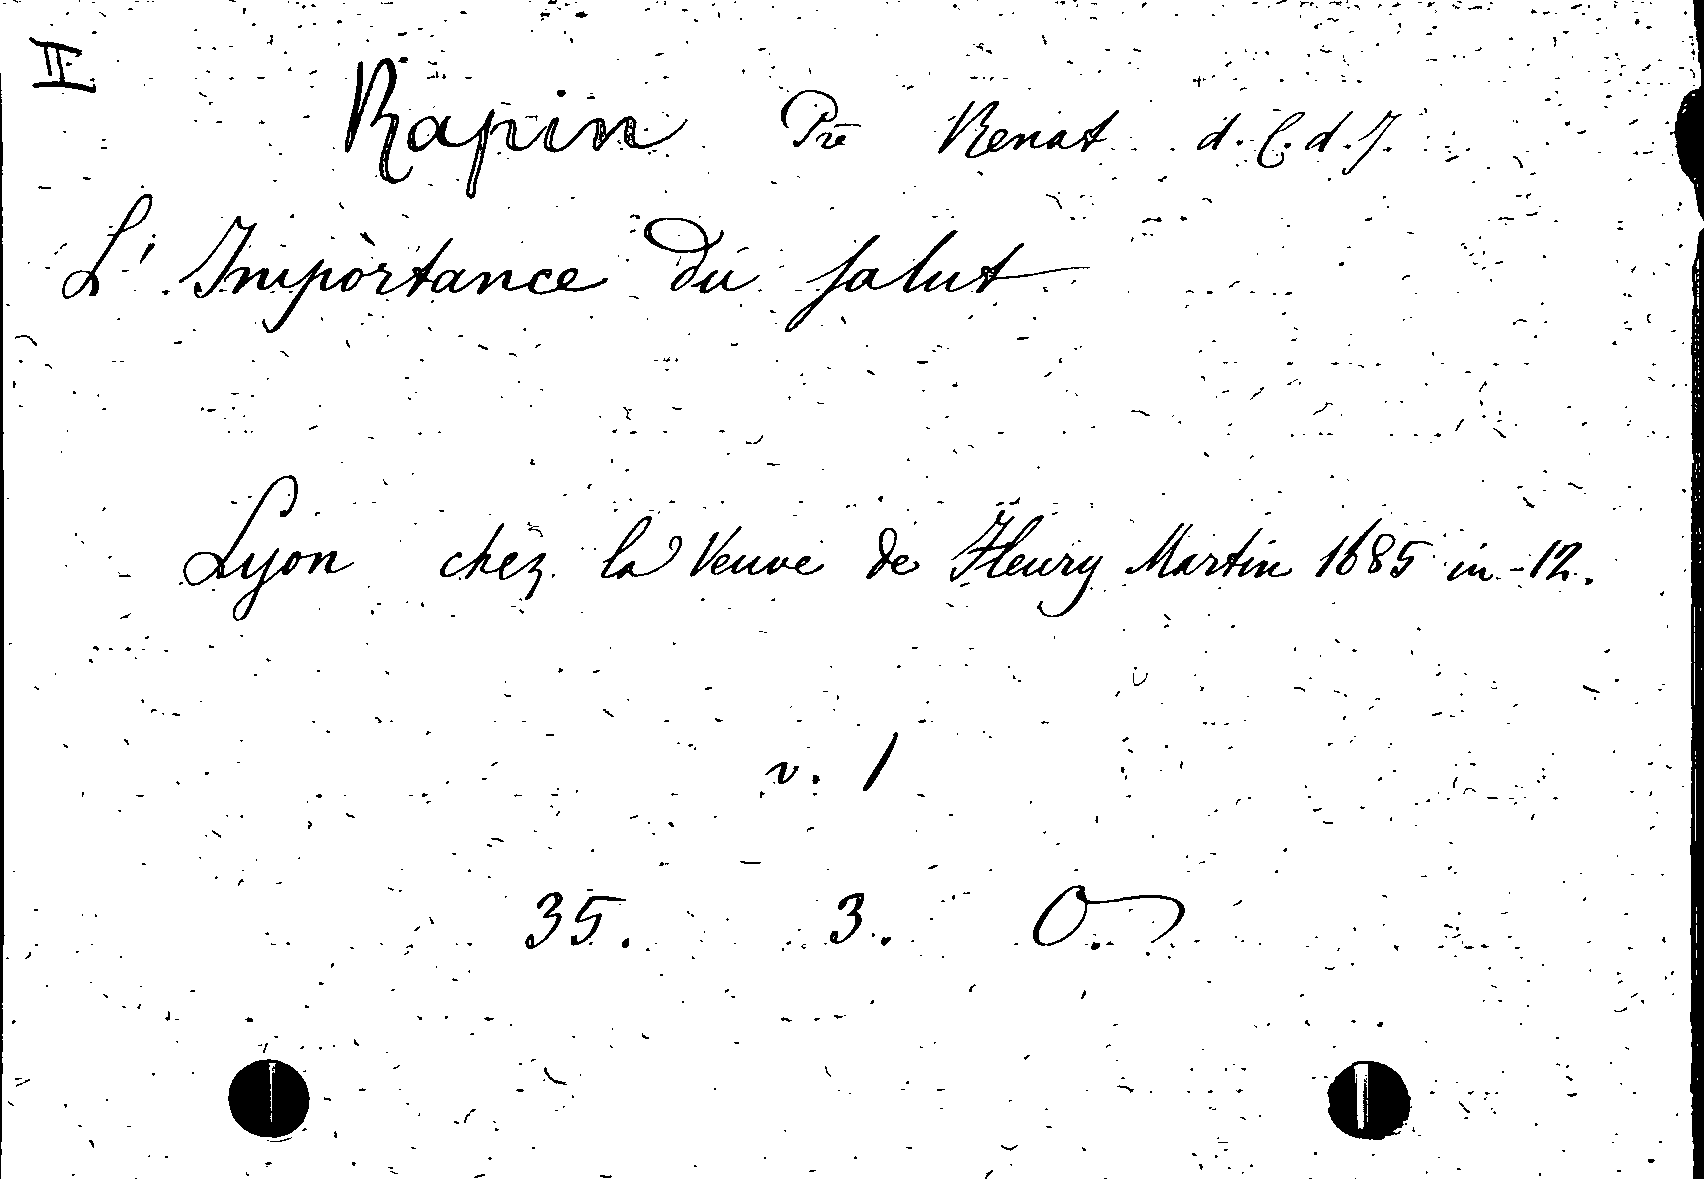 II
Rapin Pre Renat d. C. d. J.
L' Importance du salut
Lyon chez la Veuve de Fleury Martin 1685 in-12.
v. 1
35. 3. O.